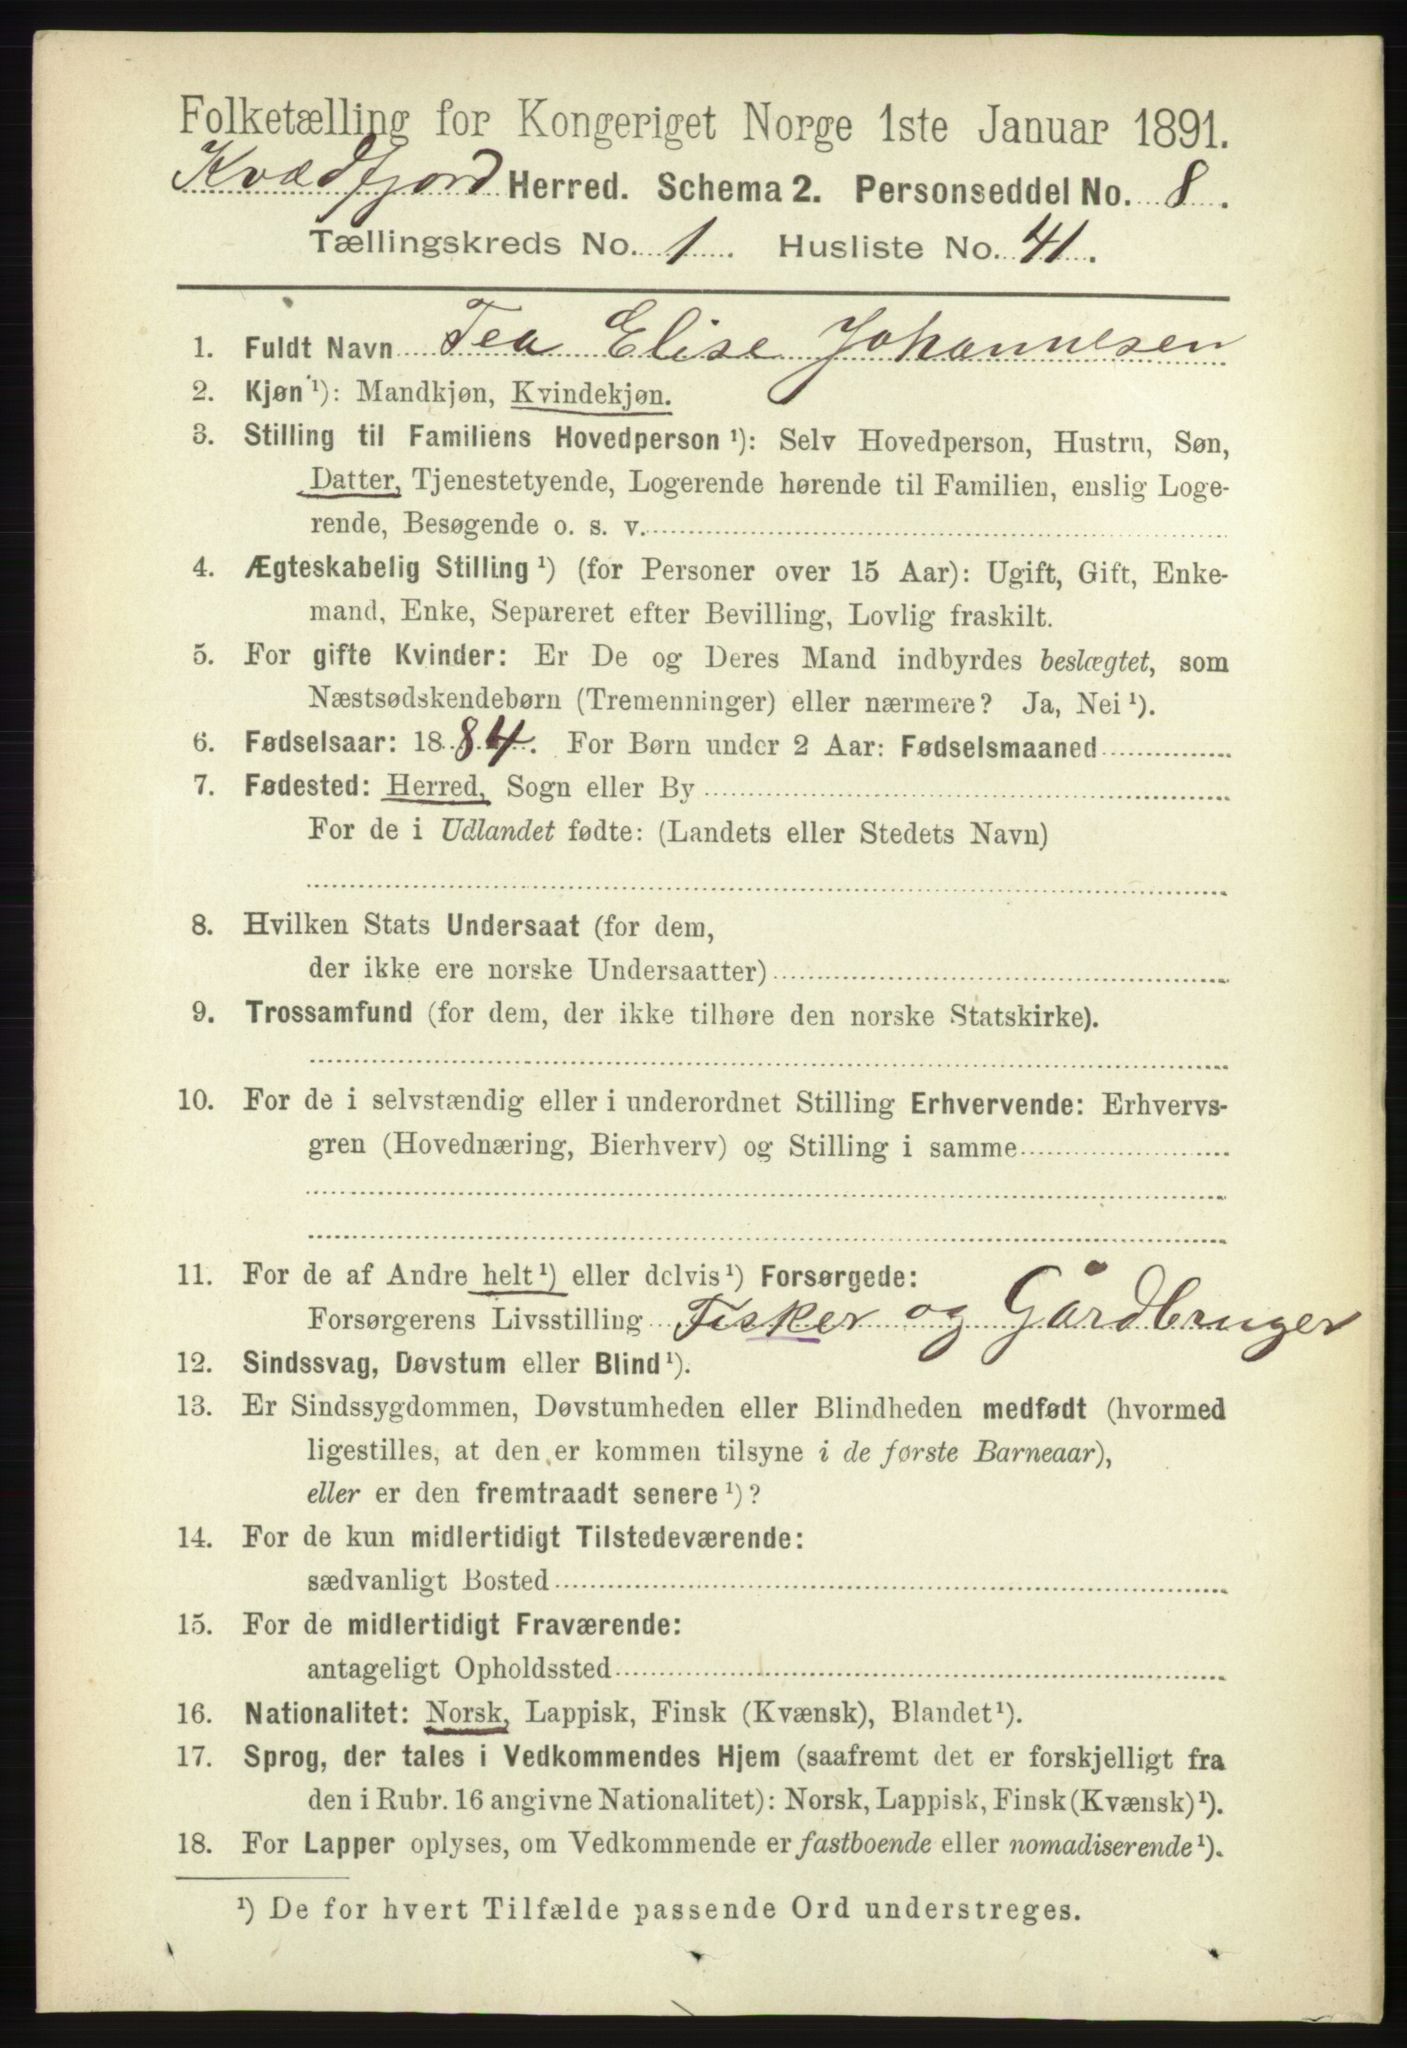 Folketælling for Kongeriget Norge 1ste Januar 1891.
Kvædfjord Herred. Schema 2. Personseddel No. 8.
Tællingskreds No. 1. Husliste No. 41.
1. Fuldt Navn Tea Elise Johannesen
2. Kjøn ¹): Mandkjøn, Kvindekjøn.
3. Stilling til Familiens Hovedperson ¹): Selv Hovedperson, Hustru, Søn,
Datter, Tjenestetyende, Logerende hørende til Familien, enslig Loge-
rende, Besøgende o. s. v.
4. Ægteskabelig Stilling ¹) (for Personer over 15 Aar): Ugift, Gift, Enke-
mand, Enke, Separeret efter Bevilling, Lovlig fraskilt.
5. For gifte Kvinder: Er De og Deres Mand indbyrdes beslægtet, som
Næstsødskendebørn (Tremenninger) eller nærmere? Ja, Nei ¹).
6. Fødselsaar: 1884. For Børn under 2 Aar: Fødselsmaaned
7. Fødested: Herred, Sogn eller By
For de i Udlandet fødte: (Landets eller Stedets Navn)
8. Hvilken Stats Undersaat (for dem,
der ikke ere norske Undersaatter)
9. Trossamfund (for dem, der ikke tilhøre den norske Statskirke).
10. For de i selvstændig eller i underordnet Stilling Erhvervende: Erhvervs-
gren (Hovednæring, Bierhverv) og Stilling i samme
11. For de af Andre helt ¹) eller delvis ¹) Forsørgede:
Forsørgerens Livsstilling Fisker og Gårdbruger
12. Sindssvag, Døvstum eller Blind ¹).
13. Er Sindssygdommen, Døvstumheden eller Blindheden medfødt (hvormed
ligestilles, at den er kommen tilsyne i de første Barneaar),
eller er den fremtraadt senere ¹)?
14. For de kun midlertidigt Tilstedeværende:
sædvanligt Bosted
15. For de midlertidigt Fraværende:
antageligt Opholdssted
16. Nationalitet: Norsk, Lappisk, Finsk (Kvænsk), Blandet ¹).
17. Sprog, der tales i Vedkommendes Hjem (saafremt det er forskjelligt fra
den i Rubr. 16 angivne Nationalitet): Norsk, Lappisk, Finsk (Kvænsk) ¹).
18. For Lapper oplyses, om Vedkommende er fastboende eller nomadiserende ¹).
¹) De for hvert Tilfælde passende Ord understreges.